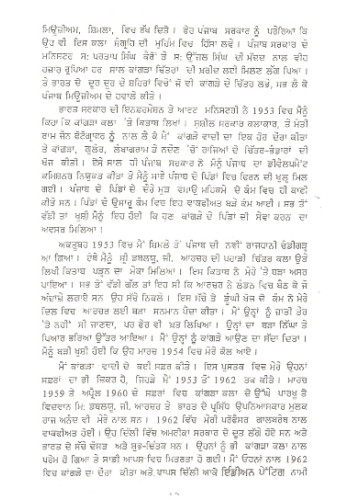 ਮਿਊਜ਼ੀਅਮ, ਸ਼ਿਮਲਾ, ਵਿਚ ਭੇਂਜ ਦਿਤੀ । ਫੇਰ ਪੰਜਾਬ ਸਰਕਾਰ ਨੂੰ ਪਤੇਰਿਆ ਕਿ
ਉਹ ਵੀ ਇਸ ਕਲਾ ਸੰਗ੍ਰਹਿ ਦੀ ਮੁਹਿੰਮ ਵਿਚ ਹਿੱਸਾ ਲਵੇ । ਪੰਜਾਬ ਸਰਕਾਰ ਦੇ
ਮਨਿਸਟਰ ਸ: ਪਰਤਾਪ ਸਿੰਘ ਕੈਰੋਂ ਤੇ ਸ: ਉੱਜਲ ਸਿੰਘ ਦੀ ਮੱਦਦ ਨਾਲ ਵੀਹ
ਹਜ਼ਾਰ ਰੁਪਿਆ ਹਰ ਸਾਲ ਕਾਂਗੜਾ ਚਿੱਤਰਾਂ ਦੀ ਖ਼ਰੀਦ ਲਈ ਮਿਲਣ ਲੱਗ ਪਿਆ ।
ਤੇ ਭਾਰਤ ਦੇ ਦੂਰ ਦੂਰ ਦੇ ਸ਼ਹਿਰਾਂ ਵਿਚੋਂ ਜੋ ਵੀ ਕਾਂਗੜੇ ਦੇ ਚਿੱਤਰ ਲਭੇ, ਸਭ ਲੈ ਕੇ
ਪੰਜਾਬ ਮਿਊਜ਼ੀਅਮ ਦੇ ਹਵਾਲੇ ਕੀਤੇ ।
ਭਾਰਤ ਸਰਕਾਰ ਦੀ ਇਨਫ਼ਰਮੇਸ਼ਨ ਤੇ ਆਰਟ ਮਨਿਸਟਰੀ ਨੇ 1953 ਵਿਚ ਮੈਨੂੰ
ਕਿਹਾ ਕਿ ਕਾਂਗੜਾ ਕਲਾ 'ਤੇ ਕਿਤਾਬ ਲਿਖਾਂ । ਸੁਸ਼ੀਲ ਸਰਕਾਰ ਕਲਾਕਾਰ, ਤੇ ਮੰਤਰੀ
ਰਾਮ ਜੋਨ ਫ਼ੋਟੋਗ੍ਰਾਫ਼ਰ ਨੂੰ ਨਾਲ ਲੈ ਕੇ ਮੈਂ ਕਾਂਗੜਾ ਵਾਦੀ ਦਾ ਇਕ ਹੋਰ ਦੌਰਾ ਕੀਤਾ
ਤੇ ਕਾਂਗੜਾ, ਗੁਲੇਰ, ਲੰਬਾਗਰਾਮ ਤੇ ਨਦੌਣ 'ਚੋਂ ਰਾਜਿਆਂ ਦੇ ਚਿੱਤਰ-ਭੰਡਾਰਾਂ ਦੀ
ਖੋਜ ਕੀਤੀ । ਏਸੇ ਸਾਲ ਹੀ ਪੰਜਾਬ ਸਰਕਾਰ ਨੇ ਮੈਨੂੰ ਪੰਜਾਬ ਦਾ ਡੀਵੈਲਪਮੈਂਟ
ਕਮਿਸ਼ਨਰ ਨਿਯੁਕਤ ਕੀਤਾ ਤੇ ਮੈਨੂੰ ਸਾਰੇ ਪੰਜਾਬ ਦੇ ਪਿੰਡਾਂ ਵਿਚ ਫਿਰਨ ਦੀ ਖੁਲ੍ਹ ਮਿਲ
ਗਈ । ਪੰਜਾਬ ਦੇ ਪਿੰਡਾਂ ਦੇ ਦੌਰੇ ਮੁੜ ਵਸਾਊ ਮਹਿਕਮੇ ਦੇ ਕੰਮ ਵਿਚ ਹੀ ਬਾਣੀ
ਕੀਤੇ ਸਨ । ਪਿੰਡਾਂ ਦੇ ਉਸਾਰੂ ਕੰਮ ਵਿਚ ਇਹ ਵਾਕਫ਼ੀਅਤ ਬੜੇ ਕੰਮ ਆਈ । ਸਭ ਤੋਂ
ਵੱਡੀ ਤਾਂ ਖ਼ੁਸ਼ੀ ਮੈਨੂੰ ਇਹ ਹੋਈ ਕਿ ਹੁਣ ਕਾਂਗੜੇ ਦੇ ਪਿੰਡਾਂ ਦੀ ਸੇਵਾ ਕਰਨ ਦਾ
ਅਵਸਰ ਮਿਲਿਆ ।
ਅਕਤੂਬਰ 1953 ਵਿਚ ਮੈਂ ਸ਼ਿਮਲੇ ਤੋਂ ਪੰਜਾਬ ਦੀ ਨਵੀਂ ਰਾਜਧਾਨੀ ਚੰਡੀਗੜ੍ਹ
ਆ ਗਿਆ । ਏਥੇ ਮੈਨੂੰ ਸ੍ਰੀ ਡਬਲਯੂ. ਜੀ. ਆਰਚਰ ਦੀ ਪਹਾੜੀ ਚਿੱਤਰ ਕਲਾ ਉਤੇ
ਲਿਖੀ ਕਿਤਾਬ ਪੜ੍ਹਨ ਦਾ ਮੌਕਾ ਮਿਲਿਆ । ਇਸ ਕਿਤਾਬ ਨੇ ਮੇਰੇ 'ਤੇ ਬੜਾ ਅਸਰ
ਪਾਇਆ । ਸਭ ਤੋਂ ਵੱਡੀ ਗੱਲ ਤਾਂ ਇਹ ਸੀ ਕਿ ਆਰਚਰ ਨੇ ਲੰਡਨ ਵਿਚ ਬੈਠ ਕੇ ਜੋ
ਅੰਦਾਜ਼ੇ ਲਗਾਏ ਸਨ ਉਹ ਸੱਚੇ ਨਿਕਲੇ । ਇਸ ਸੱਚੇ ਤੇ ਡੂੰਘੀ ਖੋਜ ਦੇ ਕੰਮ ਨੇ ਮੇਰੇ
ਦਿਲ ਵਿਚ ਆਰਚਰ ਲਈ ਬੜਾ ਸਨਮਾਨ ਪੈਦਾ ਕੀਤਾ । ਮੈਂ ਉਨ੍ਹਾਂ ਨੂੰ ਜ਼ਾਤੀ ਤੌਰ
'ਤੇ ਨਹੀਂ ਸੀ ਜਾਣਦਾ, ਪਰ ਫੇਰ ਵੀ ਖ਼ਤ ਲਿਖਿਆ । ਉਨ੍ਹਾਂ ਦਾ ਬੜਾ ਨਿੱਘਾ ਤੇ
ਪਿਆਰ ਭਰਿਆ ਉੱਤਰ ਆਇਆ । ਮੈਂ ਉਨ੍ਹਾਂ ਨੂੰ ਕਾਂਗੜੇ ਆਉਣ ਦਾ ਸੱਦਾ ਦਿਤਾ ।
ਮੈਨੂੰ ਬੜੀ ਖੁਸ਼ੀ ਹੋਈ ਕਿ ਉਹ ਮਾਰਚ 1954 ਵਿਚ ਮੇਰੇ ਕੋਲ ਆਏ ।
ਮੈਂ ਕਾਂਗੜਾ ਵਾਦੀ ਦੇ ਕਈ ਸਫ਼ਰ ਕੀਤੇ । ਇਸ ਪੁਸਤਕ ਵਿਚ ਮੇਰੇ ਉਹਨਾਂ
ਸਫ਼ਰਾਂ ਦਾ ਵੀ ਜ਼ਿਕਰ ਹੈ, ਜਿਹੜੇ ਮੈਂ 1953 ਤੋਂ 1962 ਤਕ ਕੀਤੇ । ਮਾਰਚ
1959 ਤੇ ਅਪ੍ਰੈਲ 1960 ਦੇ ਸਫ਼ਰਾਂ ਵਿਚ ਕਾਂਗੜਾ ਕਲਾ ਦੇ ਉੱਘੇ ਪਾਰਖੂ ਤੇ
ਵਿਦਵਾਨ ਮਿ: ਡਬਲਯੂ. ਜੀ. ਆਰਚਰ ਤੇ ਭਾਰਤ ਦੇ ਪ੍ਰਸਿੱਧ ਉਪਨਿਆਸਕਾਰ ਮੁਲਕ
ਰਾਜ ਅਨੰਦ ਵੀ ਮੇਰੇ ਨਾਲ ਸਨ । 1962 ਵਿਚ ਮੇਰੀ ਪਰੋਫ਼ੈਸਰ ਗਾਲਬਰੇਥ ਨਾਲ
ਵਾਕਫ਼ੀਅਤ ਹੋਈ । ਉਹ ਦਿੱਲੀ ਵਿੱਚ ਅਮਰੀਕਾ ਸਰਕਾਰ ਦੇ ਦੂਤ ਲੱਗੇ ਹੋਏ ਸਨ ਅਤੇ
ਭਾਰਤ ਦੇ ਸੱਚੇ ਦੋਸਤ ਅਤੇ ਸ਼ੁਭ-ਚਿੰਤਕ ਸਨ । ਉਹਨਾਂ ਨੂੰ ਵੀ ਕਾਂਗੜਾ ਕਲਾ ਨਾਲ
ਪਰੇਮ ਹੋ ਗਿਆ ਤੇ ਸਾਡੀ ਆਪਸ ਵਿਚ ਮਿਤਰਤਾ ਹੋ ਗਈ । ਮੈਂ ਓਹਨਾਂ ਨਾਲ 1962
ਵਿਚ ਕਾਂਗੜਾ ਦਾ ਦੌਰਾ ਕੀਤਾ ਅਤੇ ਵਾਪਸ ਦਿੱਲੀ ਆਕੇ ਇੰਡੀਅਨ ਪੇਂਟਿੰਗ ਨਾਮੀ